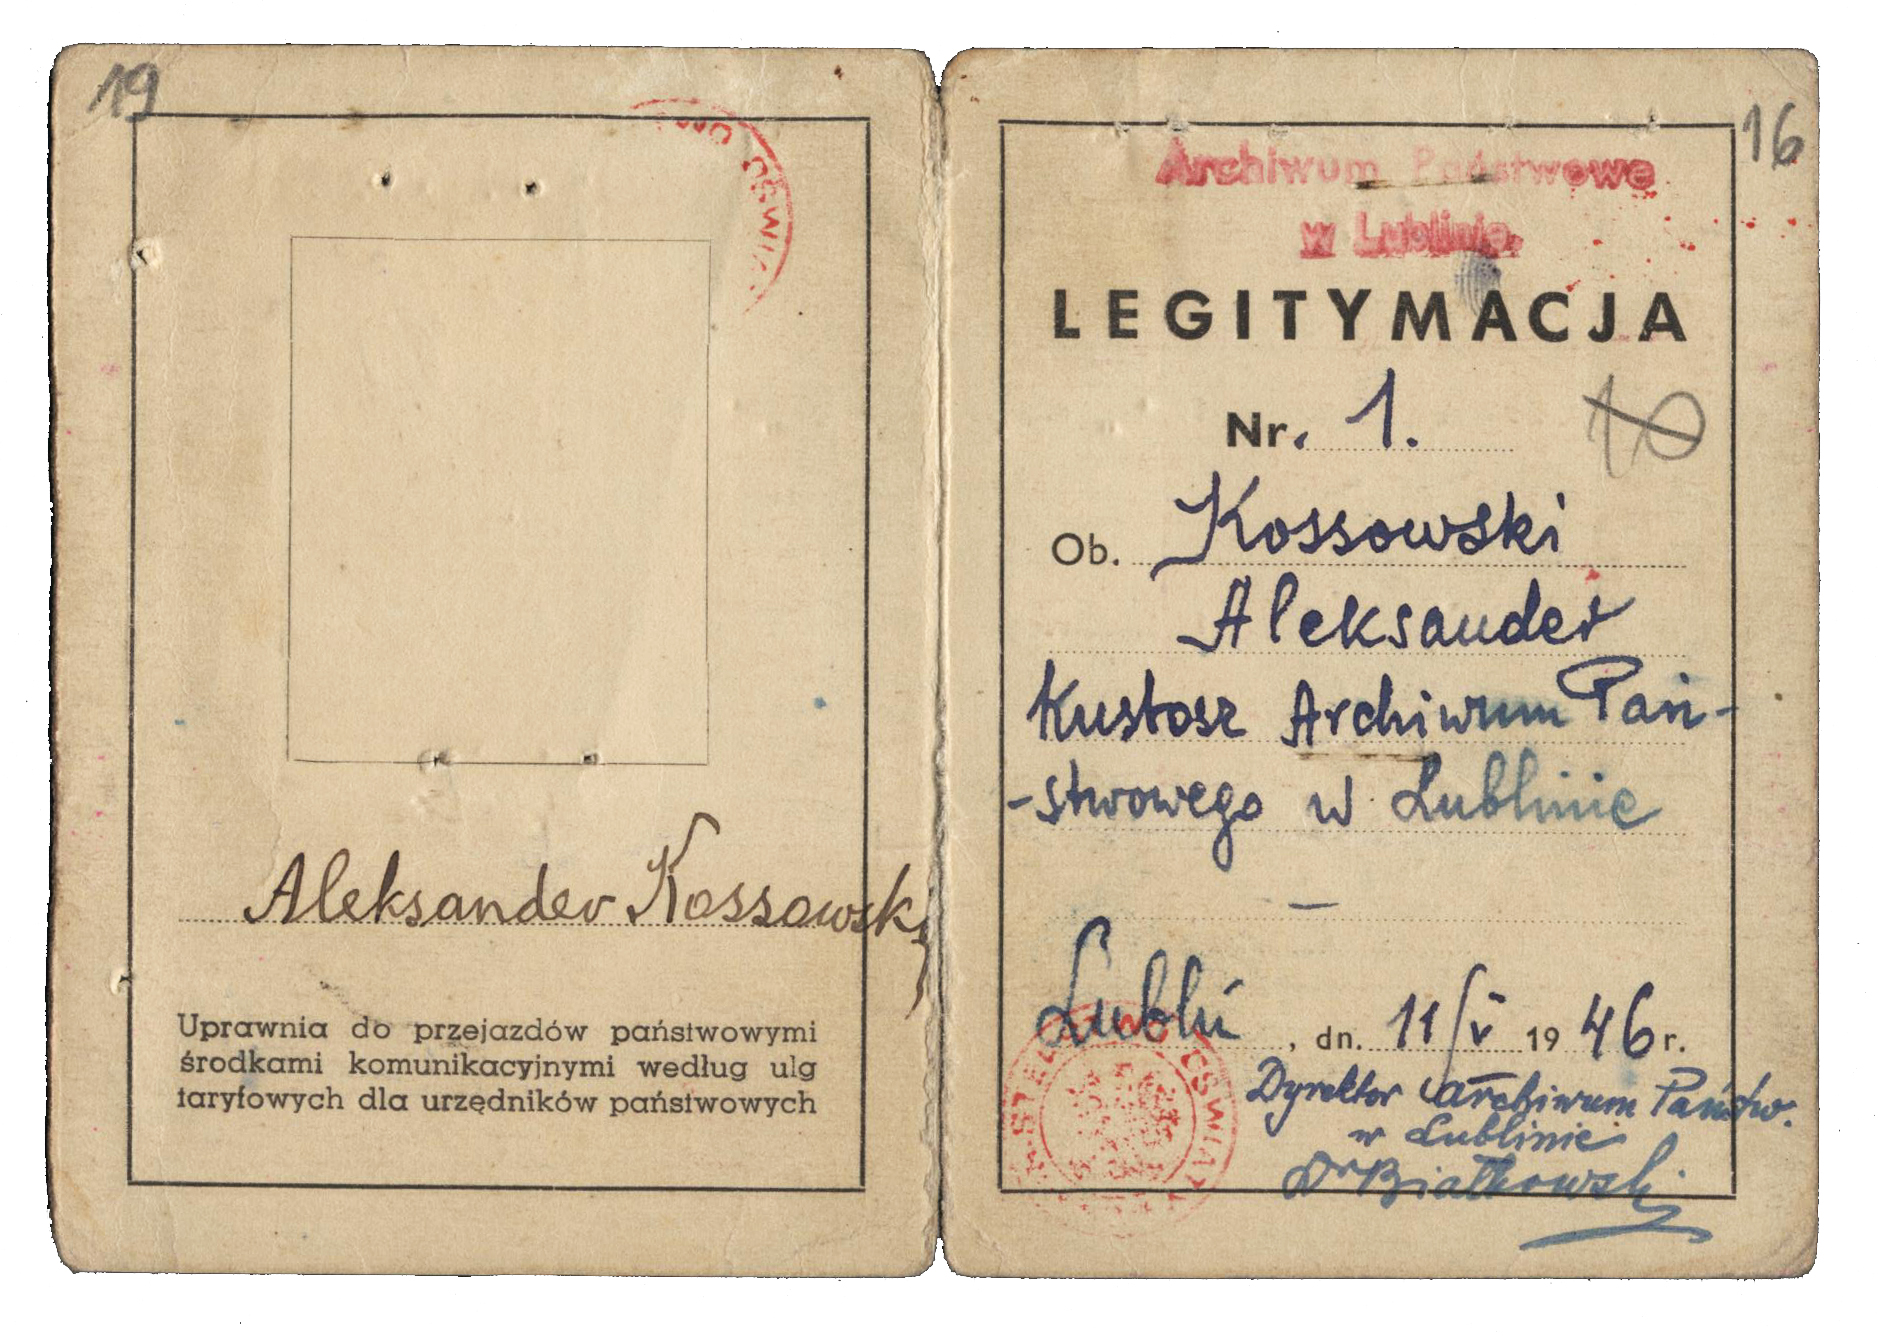 19
Aleksander Kossowski
Uprawnia do przejazdów państwowymi
środkami komunikacyjnymi według ulg
taryfowych dla urzędników państwowych
16
Archiwum Państwowe
w Lublinie
LEGITYMACJA
Nr. 1.
10
Ob. Kossowski
Aleksander
Kustosz Archiwum Pań-
-stwowego w Lublinie
—
Lublin, dn. 11/V 1946 r.
Dyrektor Archiwum Państw.
w Lublinie
Dr Białkowski